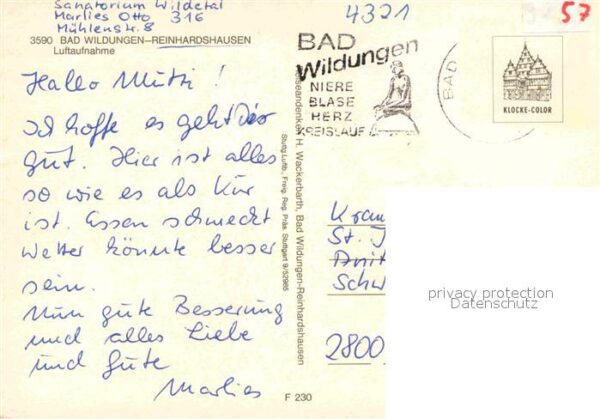 Sanatorium Wildetal
Marlies Otto 316
Mühlenstr. 8
3590 BAD WILDUNGEN–REINHARDSHAUSEN
Luftaufnahme
Hallo Mutti !
Ich hoffe es geht Dir
gut. Hier ist alles
so wie es als Kur
ist. Essen schmeckt
Wetter könnte besser
sein.
Nun gute Besserung
und alles Liebe
und Gute
Marlies
4321
57
BAD
Wildungen
NIERE
BLASE
HERZ
KREISLAUF
BAD
KLOCKE-COLOR
Reiseandenken H. Wackerbarth, Bad Wildungen-Reinhardshausen
Stuttg. Luftb., Freig. Reg. Präs. Stuttgart 9/52985
Kran
St. J
Schw
2800
privacy protection
Datenschutz
F 230